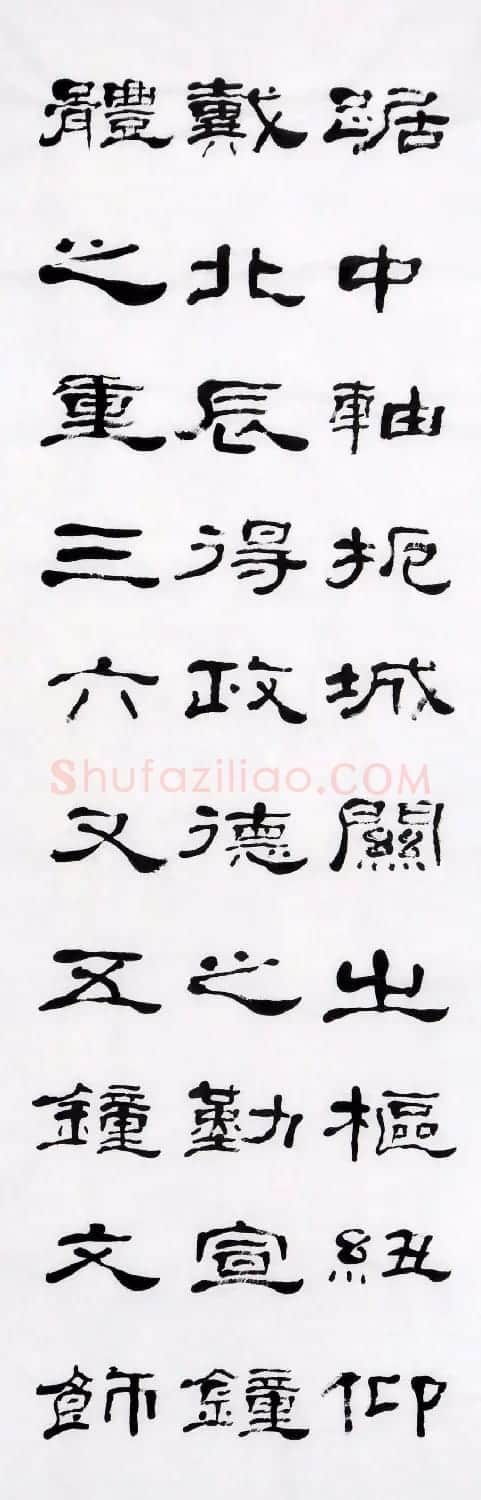 踞中軸扼城關之樞紐仰
戴北辰得政德之勤宣鐘
體之重三六又五鐘文飾
Shufaziliao.COM